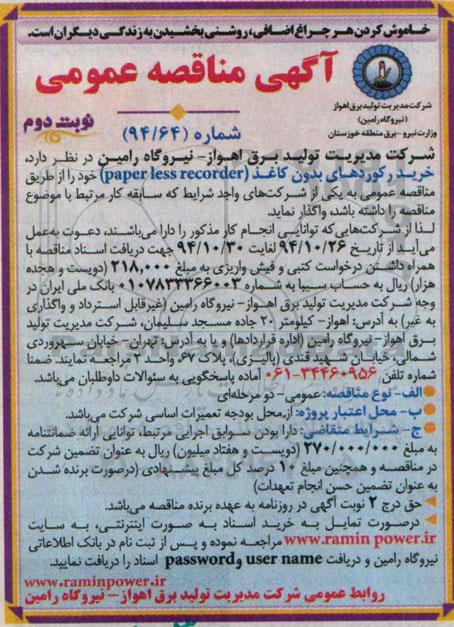 خاموش کردن هر چراغ اضافی، روشنی بخشیدن به زندگی دیگران است.
آگهی مناقصه عمومی
شرکت مدیریت تولید برق اهواز
(نیروگاه رامین)
وزارت نیرو - برق منطقه خوزستان
نوبت دوم
شماره (۹۴/۶۴)
شرکت مدیریت تولید برق اهواز- نیروگاه رامین در نظر دارد،
خرید رکوردهای بدون کاغذ (paper less recorder) خود را از طریق
مناقصه عمومی به یکی از شرکت‌های واجد شرایط که سابقه کار مرتبط با موضوع
مناقصه را داشته باشد، واگذار نماید.
لذا از شرکت‌هایی که توانایی انجام کار مذکور را دارا می‌باشند، دعوت به عمل
می‌آید از تاریخ ۹۴/۱۰/۲۶ لغایت ۹۴/۱۰/۳۰ جهت دریافت اسناد مناقصه با
همراه داشتن درخواست کتبی و فیش واریزی به مبلغ ۲۱۸,۰۰۰ (دویست و هجده
هزار) ریال به حساب سیبا به شماره ۰۱۰۷۸۳۳۳۶۶۰۰۳ بانک ملی ایران در
وجه شرکت مدیریت تولید برق اهواز- نیروگاه رامین (غیر قابل استرداد و واگذاری
به غیر) به آدرس: اهواز- کیلومتر ۲۰ جاده مسجد سلیمان، شرکت مدیریت تولید
برق اهواز- نیروگاه رامین (اداره قراردادها) و یا به آدرس: تهران- خیابان سهروردی
شمالی، خیابان شهید قندی (پالیزی)، پلاک ۶۷، واحد ۲ مراجعه نمایند. ضمنا
شماره تلفن ۳۴۴۶۰۹۵۶-۰۶۱ آماده پاسخگویی به سئوالات داوطلبان می‌باشد.
الف- نوع مناقصه: عمومی- دو مرحله‌ای
ب- محل اعتبار پروژه: از محل بودجه تعمیرات اساسی شرکت می‌باشد.
ج- شرایط متقاضی: دارا بودن سوابق اجرایی مرتبط، توانایی ارائه ضمانتنامه
به مبلغ ۲۷۰/۰۰۰/۰۰۰ (دویست و هفتاد میلیون) ریال به عنوان تضمین شرکت
در مناقصه و همچنین مبلغ ۱۰ درصد کل مبلغ پیشنهادی (درصورت برنده شدن
به عنوان تضمین حسن انجام تعهدات)
حق درج ۲ نوبت آگهی در روزنامه به عهده برنده مناقصه می‌باشد.
درصورت تمایل به خرید اسناد به صورت اینترنتی، به سایت
www.ramin power.ir مراجعه نموده و پس از ثبت نام در بانک اطلاعاتی
نیروگاه رامین و دریافت user name و password اسناد را دریافت نمایید.
www.raminpower.ir
روابط عمومی شرکت مدیریت تولید برق اهواز - نیروگاه رامین